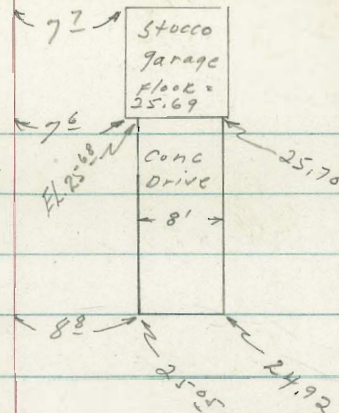 7⁷
Stucco
garage
Floor =
25.69
7⁶
EL. 25⁶⁸
25.70
Conc
Drive
8'
8⁸
25⁰⁵
24.92